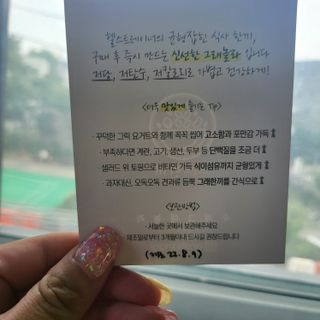 헬스트레이너의 균형잡힌 식사 한끼,
구매 후 즉시 만드는 신선한 그래놀라 입니다
저당, 저탄수, 저칼로리로 가볍고 건강하게!
<더욱 맛있게 즐기는 Tip>
· 꾸덕한 그릭 요거트와 함께 꼭꼭 씹어 고소함과 포만감 가득
· 부족하다면 계란, 고기, 생선, 두부 등 단백질을 조금 더
· 샐러드 위 토핑으로 비타민 가득 식이섬유까지 균형있게
· 과자대신, 오독오독 견과류 듬뿍 그래한끼를 간식으로
<보관방법>
서늘한 곳에서 보관해주세요
제조일로부터 3개월이내 드시길 권장드립니다
(제조 22. 8. 9)